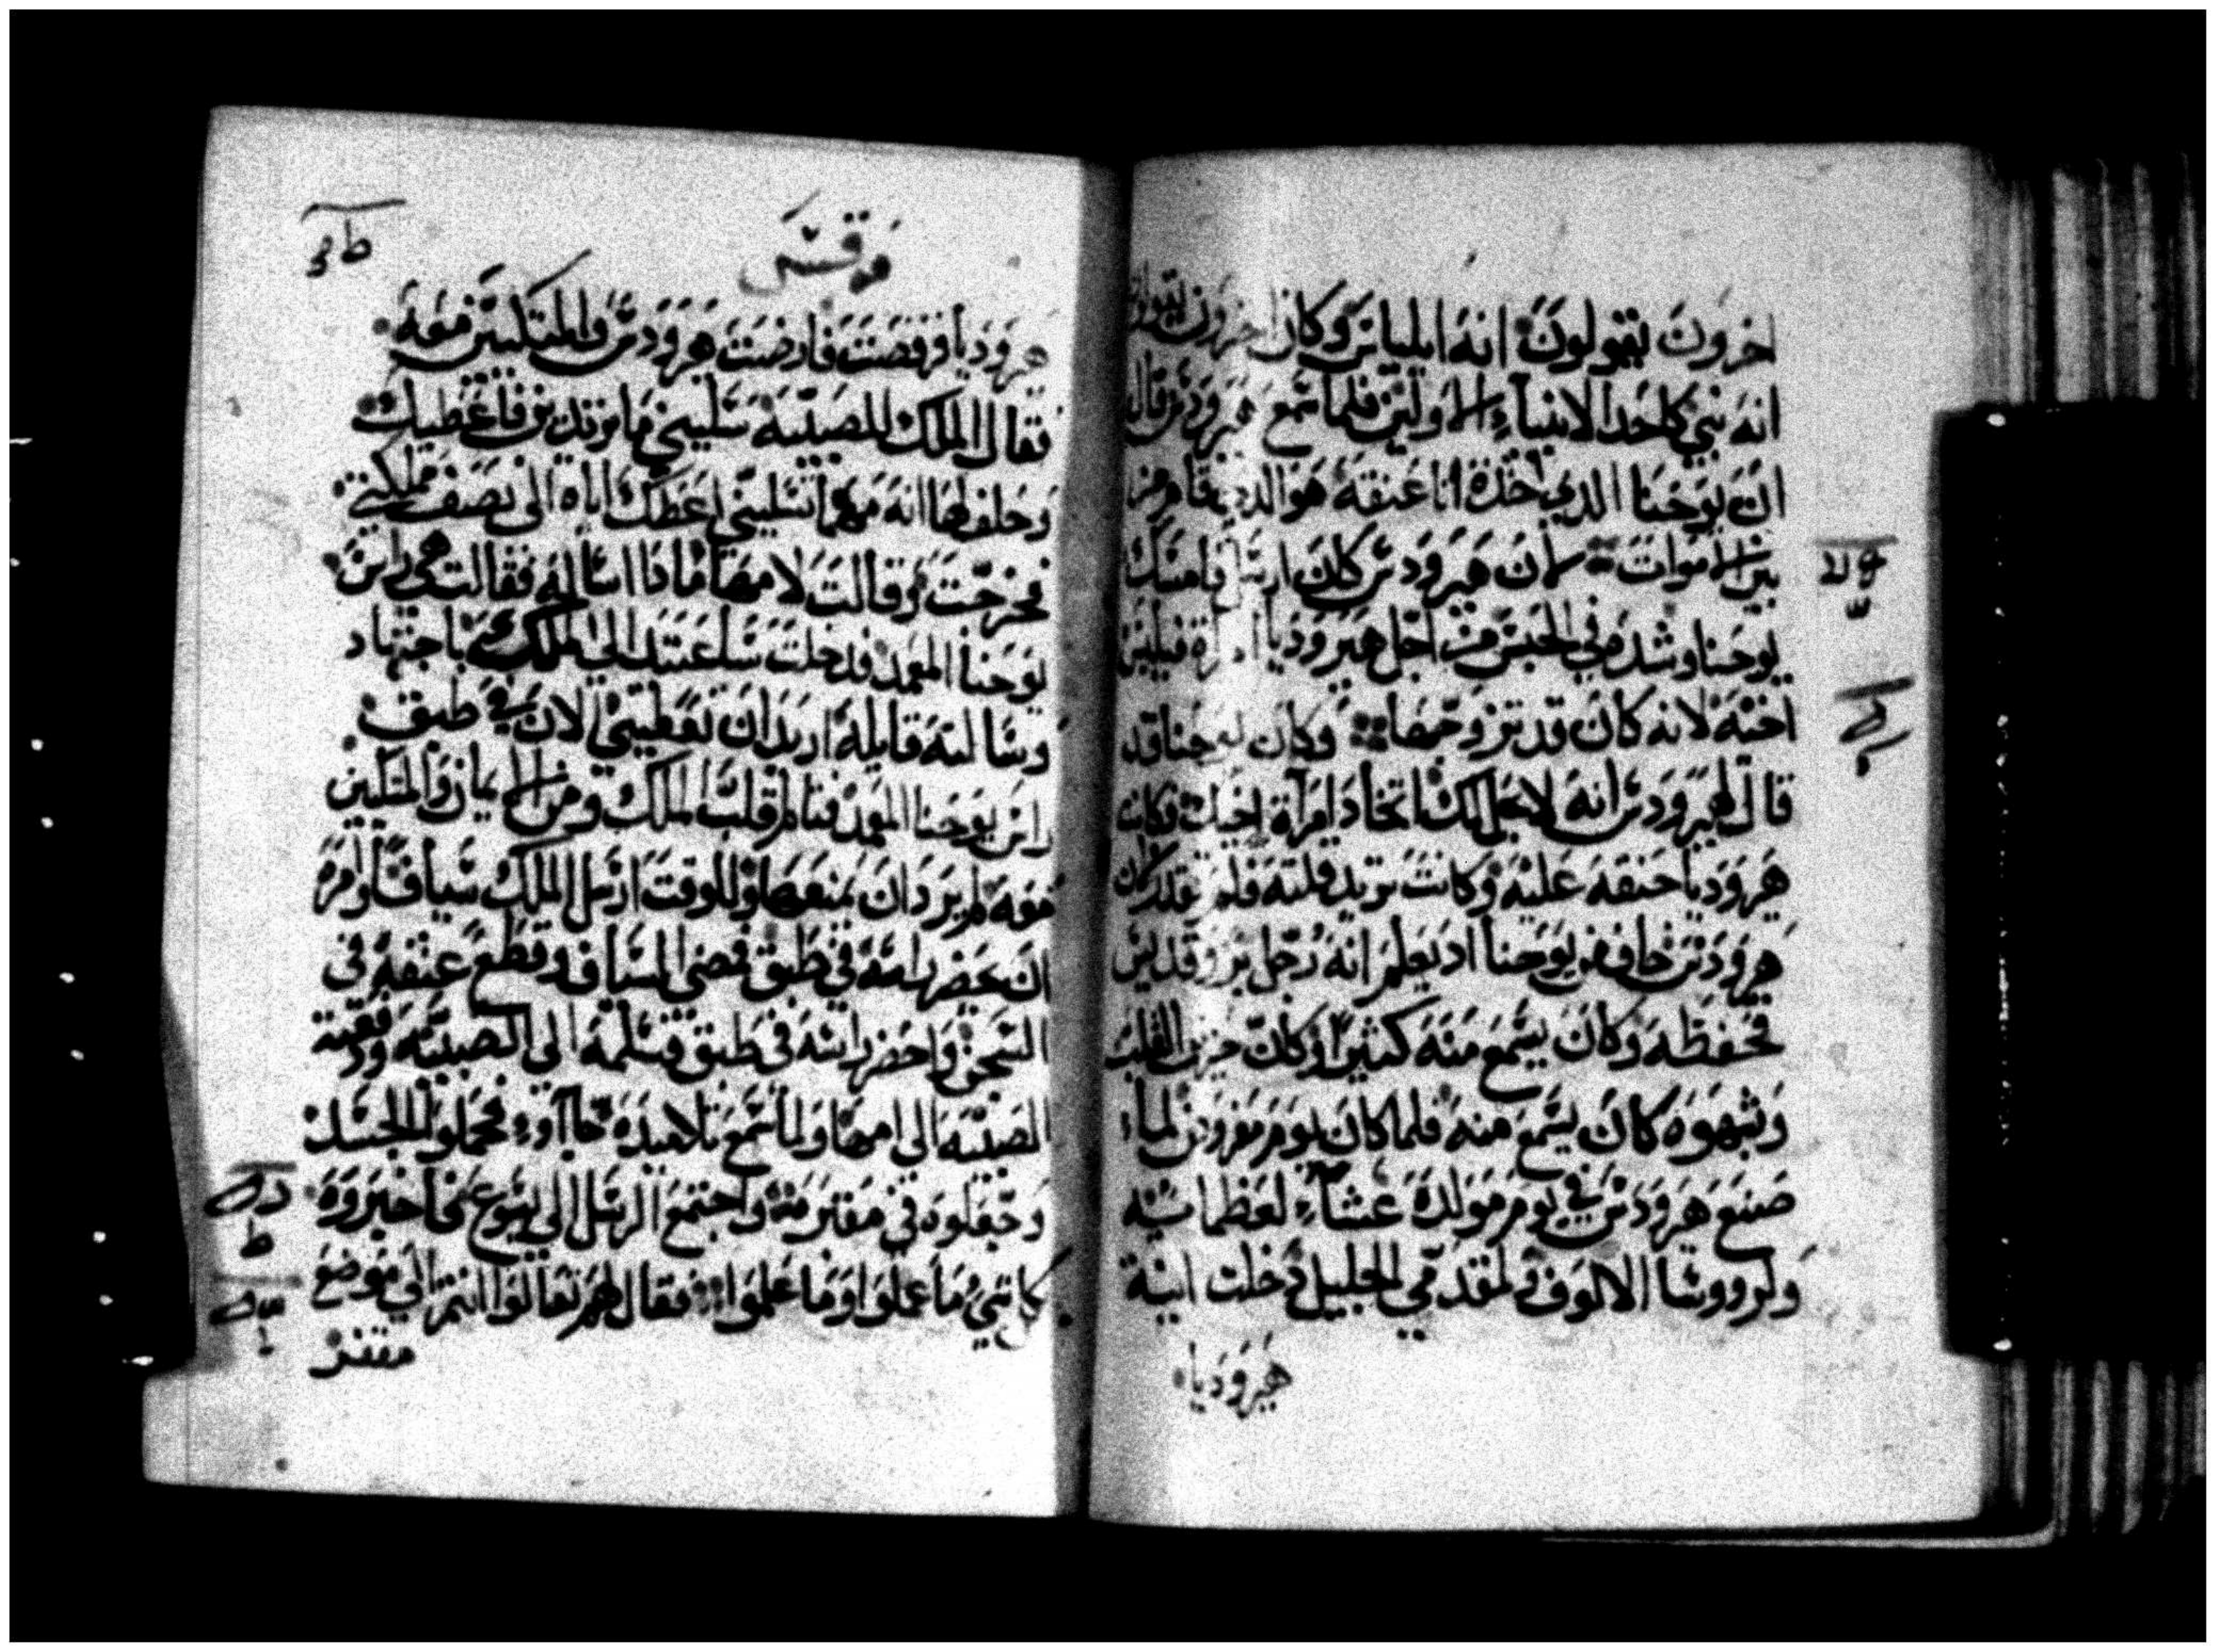 اخرون يقولون انه ايلياس وكان اخرون يقولون
انه نبي كاحد الانبياء الاولين فلما سمع هيرودس قال
ان يوحنا الذي اخذت انا عنقه هو الذي قام من
بين الاموات لان هيرودس كان ارسل فامسك
يوحنا وشده في الحبس من اجل هيروديا امراة فيلبس
اخيه لانه كان قد تزوجها وكان يوحنا قد
قال لهيرودس انه لا يحل لك اتخاد امرآة اخيك وكانت
هيروديا حنقه عليه وكانت تريد قتله فلم تقدر كان
هيرودس خاف من يوحنا اد يعلم انه رجل بر وقديس
فحفظه وكان يسمع منه كثيرا وكان حزين القلب
وبشهوه كان يسمع منه فلما كان يوم مفروز لماء
صنع هيرودس في يوم مولده عشآء لعظمائه
ولروسا الالوف ولمقدمي الجليل دخلت ابنة
هيروديا
مرقس
هروديا فرقصت فارضت هرودس والمتكيين معه
فقال الملك للصبيه سليني ما تريدين فاعطيك
وحلف لها انه مهما تسليني اعطك اياه الى نصف مملكتي
فخرجت وقالت لامها ما دا اساله فقالت هي راس
يوحنا المعمد فدخلت ساعتيد الى الملك باجتهاد
وسالته قايله اريد ان تعطيني الان في طبق
راس يوحنا المعمد فتالم قلب الملك ومن الايمان والمتكيين
معه لم يرد ان يمنعها وللوقت ارسل الملك سيافا وامره
ان يحضر راسه في طبق فمضى السياف وقطع عنقه في
السجن واحضر راسه في طبق وسلمه الى الصبيه ودفعته
الصبيه الى امها ولما سمع تلاميذه جآاوء فحملوا الجسد
وجعلوه في مقبرته واجتمع الرسل الى يسوع فاخبروه
كل شيء ما عملوا وما علموا فقال لهم تعالوا انتم الي موضع
مقفر